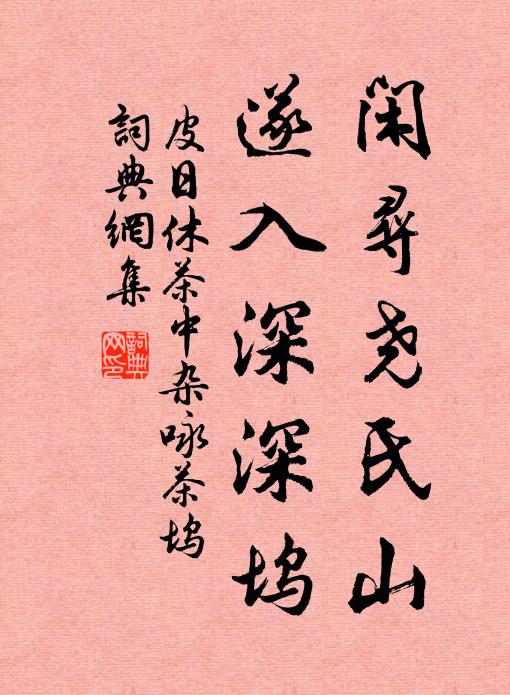 闲尋尧氏山
遂入深深坞
皮日休茶中杂咏茶坞
詞典網集
詞典
网印